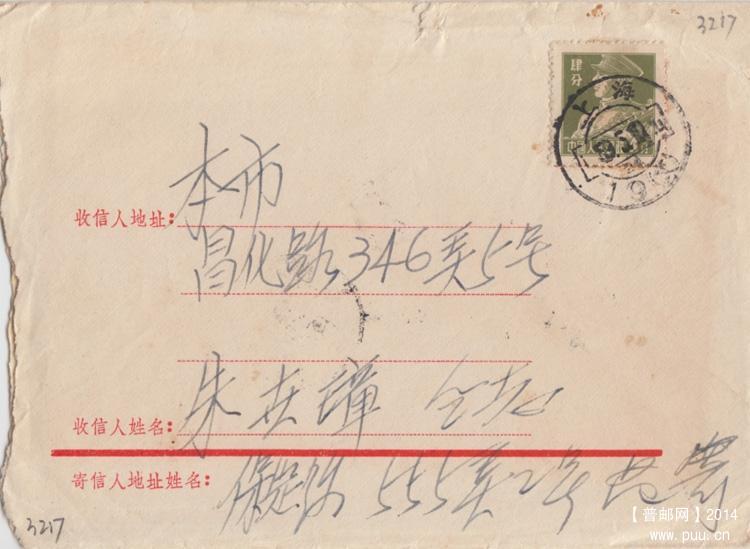 3217
肆分
上海
本市
收信人地址:
昌化路346弄5号
收信人姓名: 朱在璋 同志
寄信人地址姓名: 555弄2号
3217
【普邮网】2014
www.puu.cn